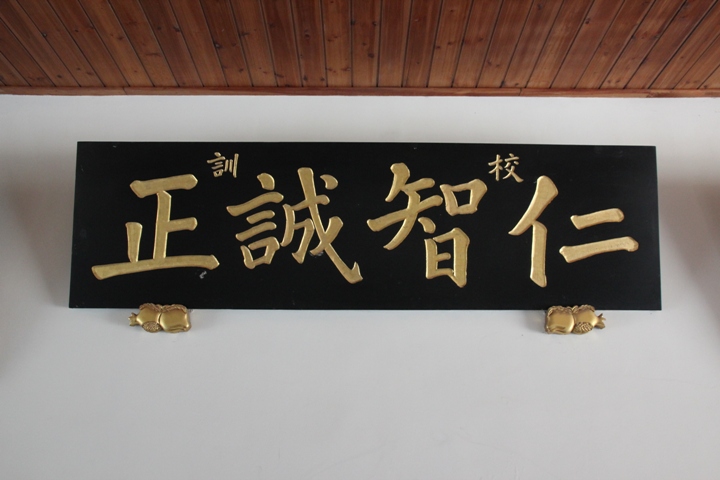 校訓
仁智誠正